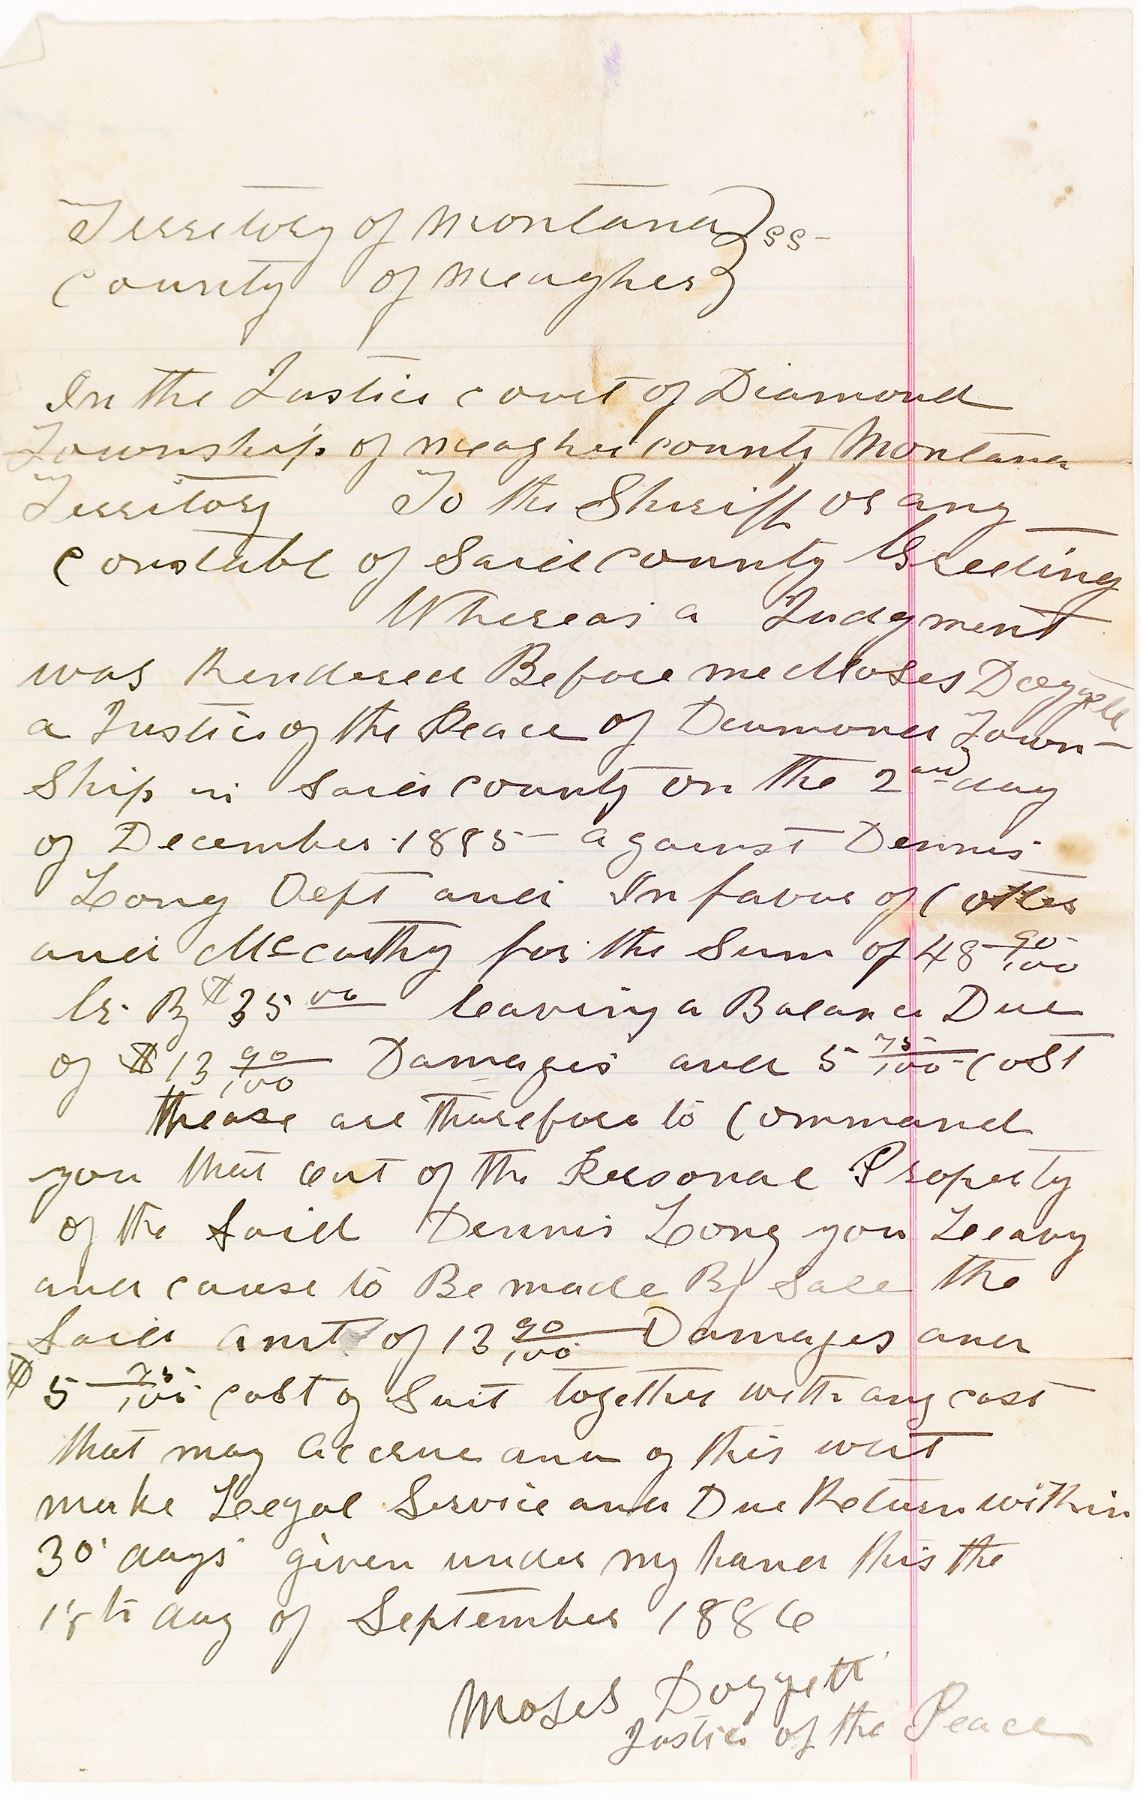 Territory of Montana } ss-
County of Meagher }
In the Justice Court of Diamond
Township of Meagher County Montana
Territory To the Sheriff or any
Constabl of Said County Greeting
Whereas a Judgment
was Rendered Before me Moses Doggett
a Justice of the Peace of Diamond Town-
Ship in Said County on the 2nd day
of December 1885 against Dennis
Long Deft and In favor of Cotter
and McCarthy for the Sum of 48 90/100
Cr. By $35 00 leaving a Balance Due
of $13 90/100 Damages and 5 75/100 Cost
thease are tharefore to Command
you that out of the Personal Property
of the Said Dennis Long you Leavy
and cause to Be made By Sale the
Said Amt of 13 90/100 Damages and
$5 75/100 Cost of Suit together with any cost
that may accrue and of this writ
make Leegal Service and Due Return within
30 days given under my hand this the
18th day of September 1886
Moses Doggett
Justice of the Peace